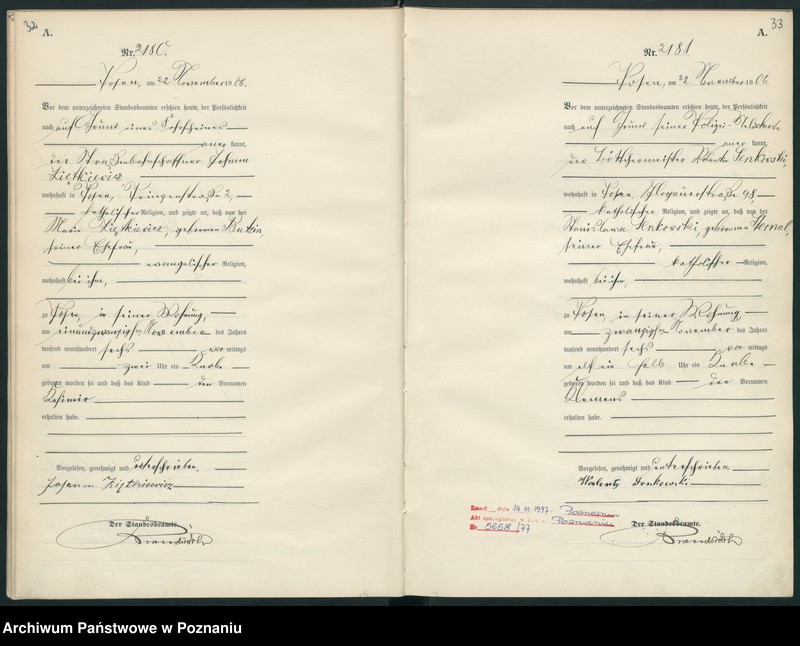 32
A.
Nr. 2180.
Posen, am 22 November 1906.
Vor dem unterzeichneten Standesbeamten erschien heute, der Persönlichkeit
nach auf Grund eines
kannt,
der Straßenbahnschaffner Johann
Ziętkiewicz
wohnhaft in Posen, Prinzenstraße 2,
katholischer Religion, und zeigte an, daß von der
Marie Ziętkiewicz, geborenen
seiner Ehefrau,
evangelischer Religion,
wohnhaft bei ihm,
zu Posen, in seiner Wohnung,
am einundzwanzigsten November des Jahres
tausend neunhundert sechs mittags
um zwei Uhr ein Knabe
geboren worden sei und daß das Kind den Vornamen
Kasimir
erhalten habe.
Vorgelesen, genehmigt und unterschrieben.
Johann Ziętkiewicz
Der Standesbeamte.
33
A.
Nr. 2181
Posen, am 22 November 1906
Vor dem unterzeichneten Standesbeamten erschien heute, der Persönlichkeit
nach auf Grund seiner Polizei-
kannt,
der Böttchermeister
wohnhaft in Posen, Glogauerstraße 98,
katholischer Religion, und zeigte an, daß von der
Stanislawa geborenen
seiner Ehefrau,
katholischer Religion,
wohnhaft bei ihm,
zu Posen, in seiner Wohnung,
am zwanzigsten November des Jahres
tausend neunhundert sechs mittags
um elf ein halb Uhr ein Knabe
geboren worden sei und daß das Kind der Vornamen
Klemens
erhalten habe.
Vorgelesen, genehmigt und unterschrieben.
Walenty
Der Standesbeamte.
Zmarł dnia 14.11.1977 Poznaniu
Poznaniu
Nr 5658/77
Archiwum Państwowe w Poznaniu